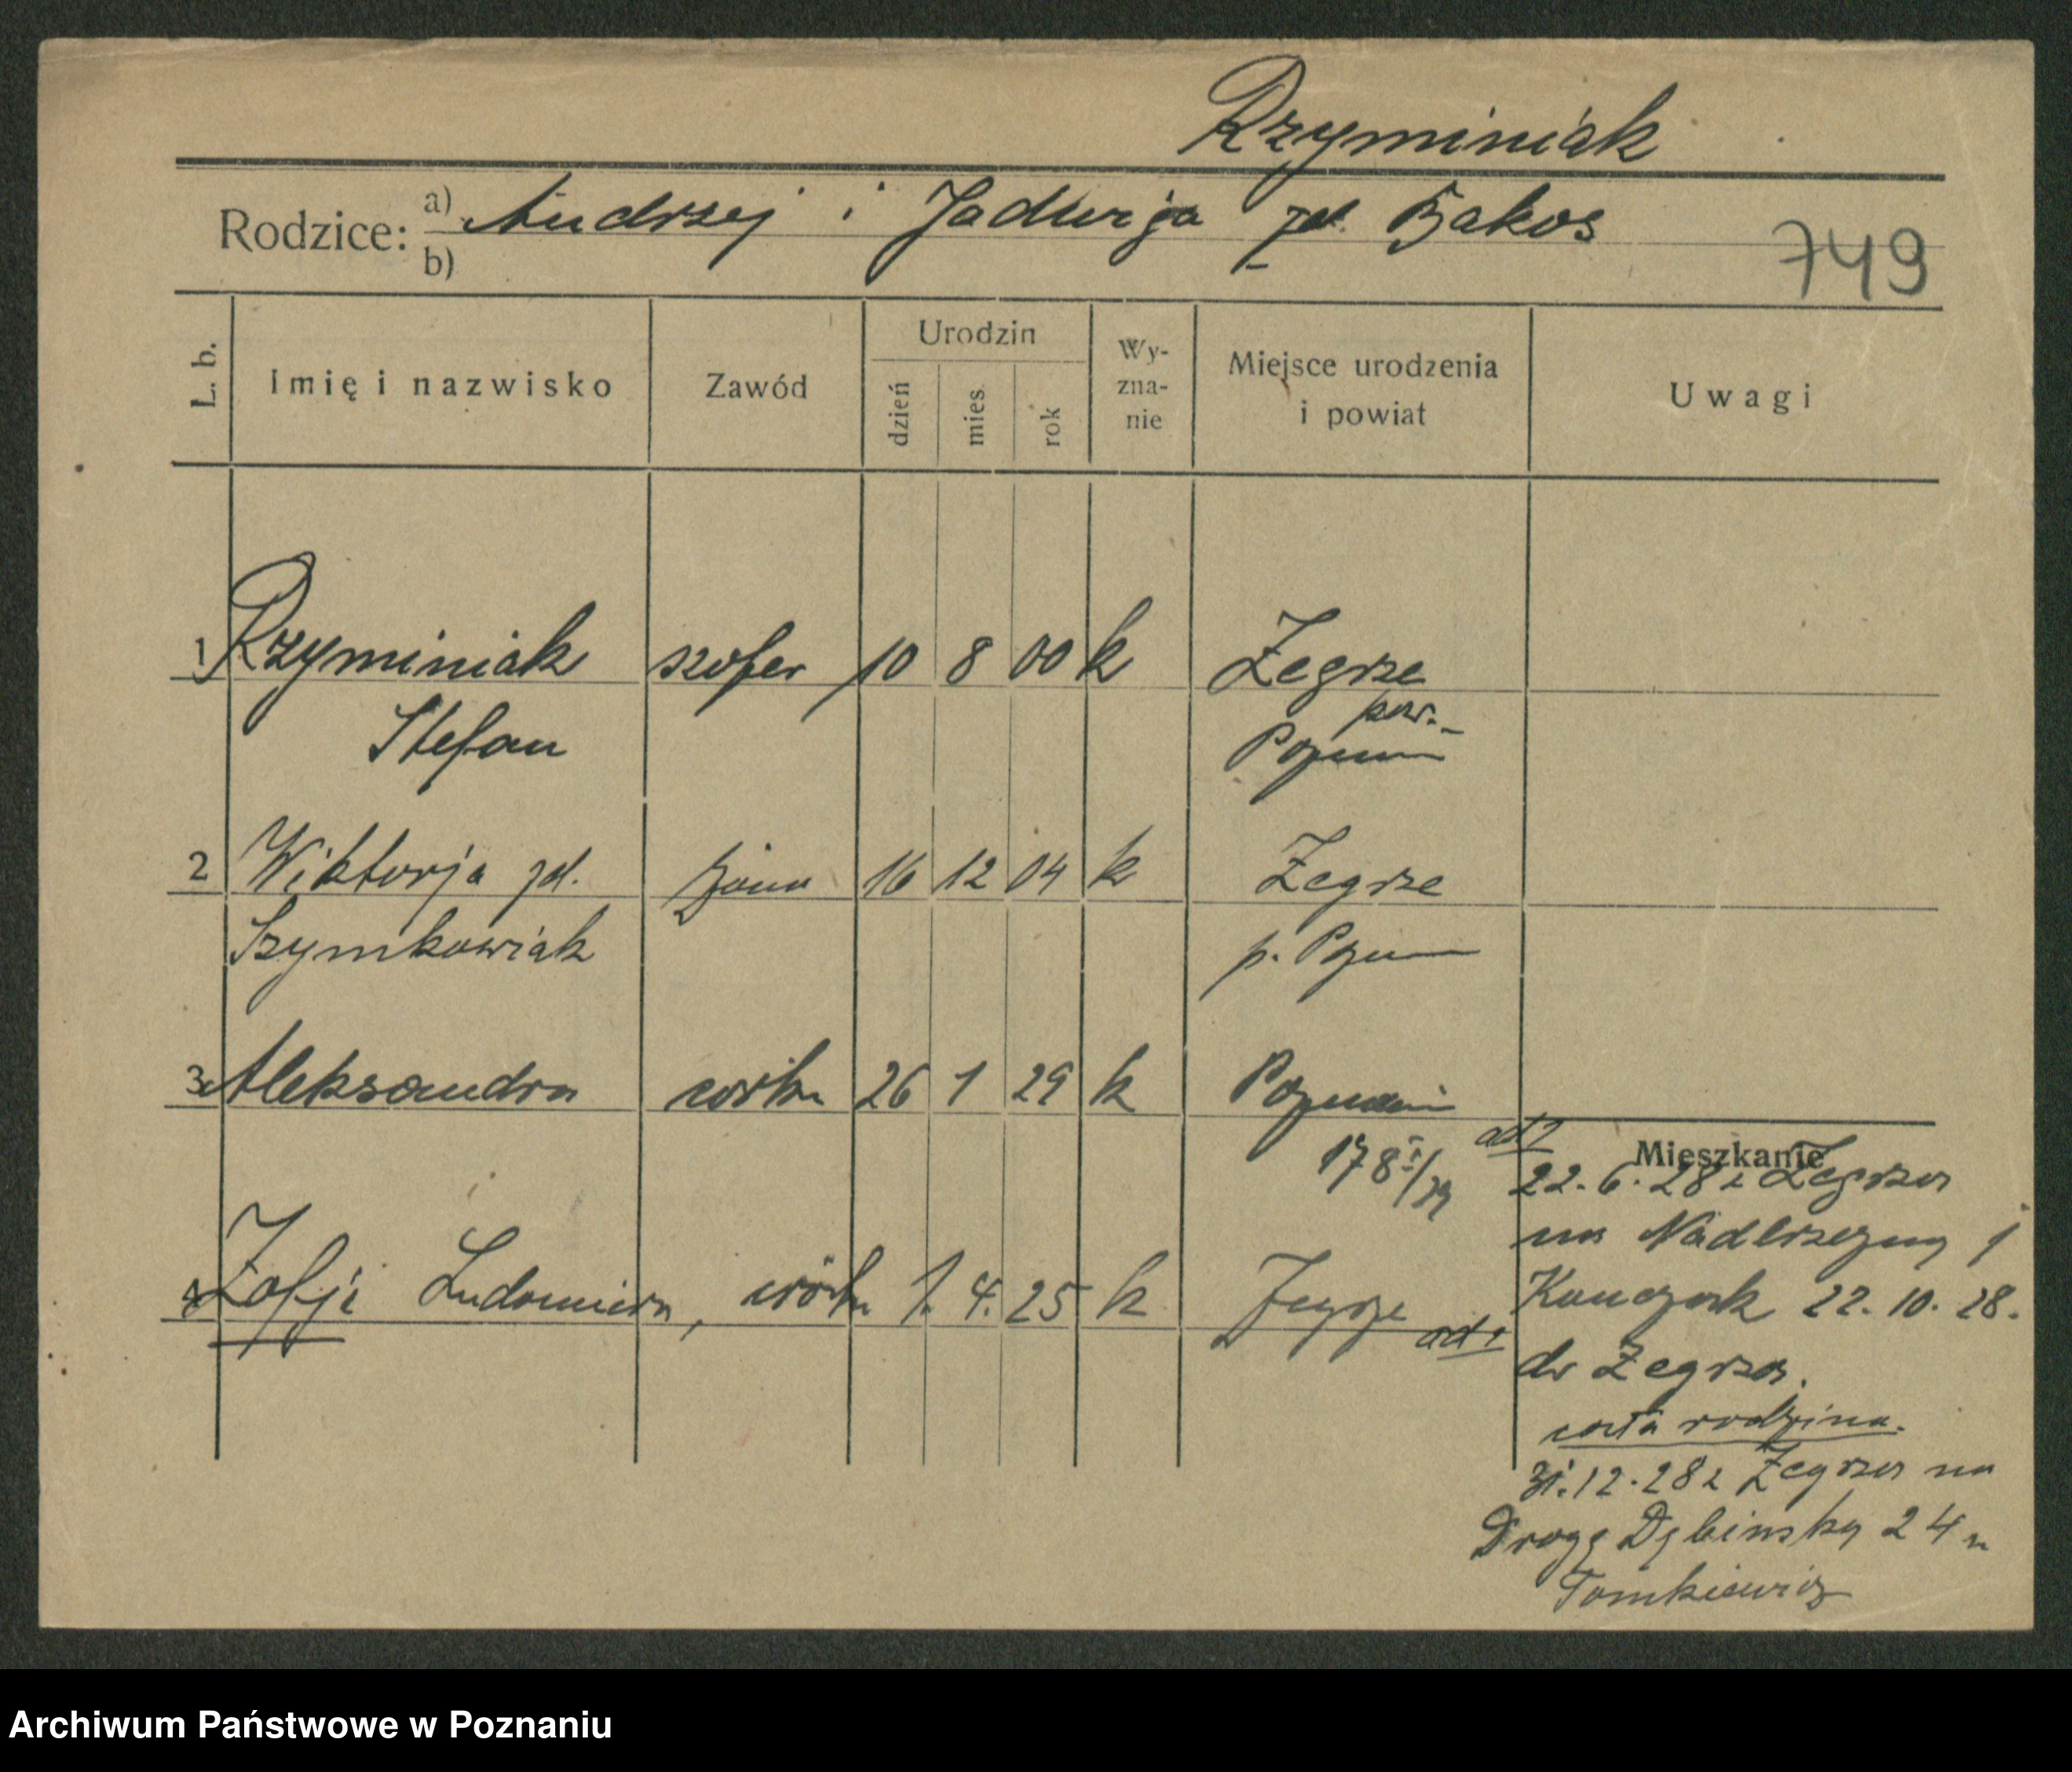 Rzyminiak
Rodzice: a) Andrzej i Jadwiga zd. Bakos
b)
749
L. b. Imię i nazwisko Zawód Urodzin dzień mies. rok Wy-zna-nie Miejsce urodzenia i powiat Uwagi
1 Rzyminiak szofer 10 8 00 k Żegrze
pow.
Stefan Poznań
2 Wiktorja zd. żona 16 12 04 k Żegrze
Szymkowiak p. Poznań
3 Aleksandra córka 26 1 29 k Poznań
178 I/29
4 Zofja Ludomira, córka 1. 4. 25 k Żegrze
Mieszkanie
ad 2 22.6.28 z Żegrza
na Nadbrzeżną 1
22.10.28.
ad 1 do Żegrza.
cała rodzina.
31.12.28 z Żegrza na
Drogę Dębińską 24 u
Tomkiewicz
Archiwum Państwowe w Poznaniu